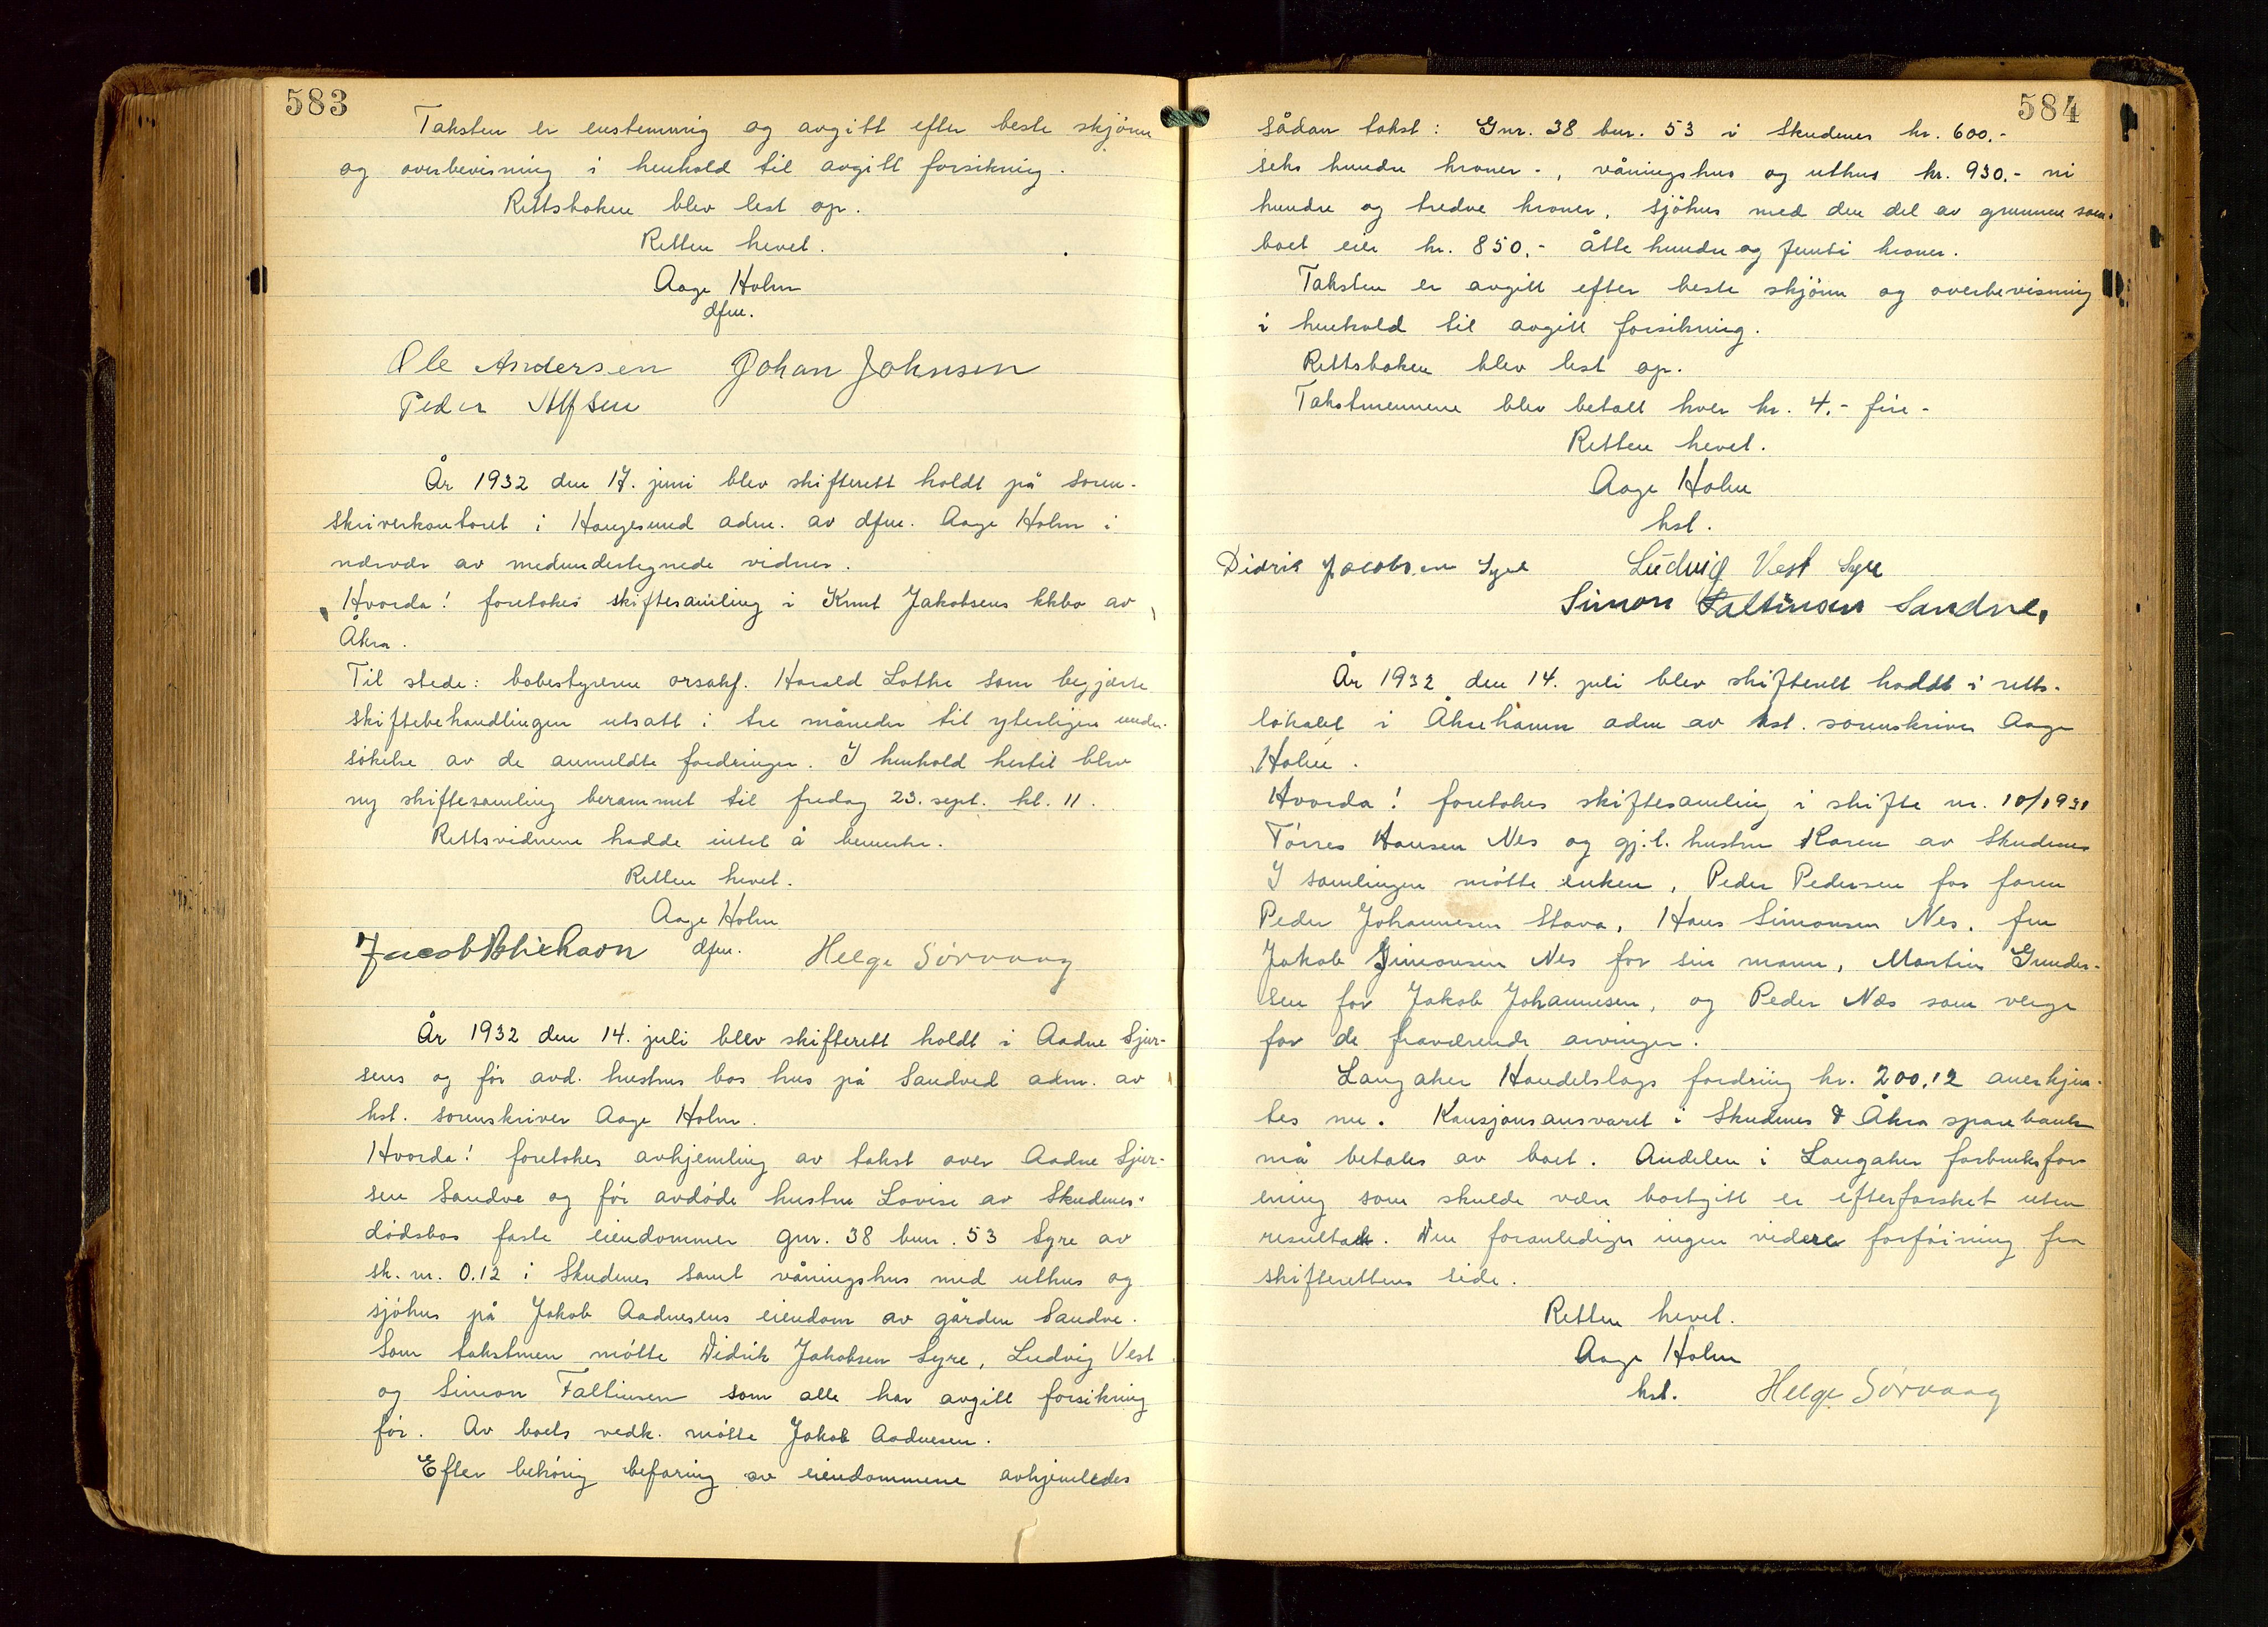 583
Taksten er enstemmig og avgitt efter beste skjönn
og overbevisning i henhold til avgitt forsikring.
Rettsboken blev lest op.
Retten hevet.
Aage Holm
dfm.
Ole Andersen Johan Johnsen
Peder Alfsen
År 1932 den 17. juni blev skifterett holdt på soren-
skriverkontoret i Haugesund adm. av dfm. Aage Holm i
nærvær av medundertegnede vidner.
Hvorda! foretokes skiftesamling i Knut Jakobsens kkbo av
Åkra.
Til stede: bobestyreren orsakf. Harald Lothe som begjærte
skiftebehandlingen utsatt i tre måneder til yterligere under-
sökelse av de anmeldte fordringer. I henhold hertil blev
ny skiftesamling berammet til fredag 23. sept. kl. 11.
Rettsvidnene hadde intet å bemerke.
Retten hevet.
Aage Holm
dfm. Helge Sörvaag
År 1932 den 14. juli blev skifterett holdt i Aadne Sjur-
sens og för avd. hustrus bos hus på Sandved adm. av
kst. sorenskriver Aage Holm.
Hvorda! foretokes avhjemling av takst over Aadne Sjur-
sen Sandve og för avdöde hustru Lovise av Skudenes
dödsbos faste eiendommer gnr. 38 bnr. 53 Syre av
sk. m. 0.12 i Skudenes samt våningshus med uthus og
sjöhus på Jakob Aadnesens eiendom av gården Sandve.
Som takstmen mötte Didrik Jakobsen Syre, Ludvig Vest
og Simon Faltinsen som alle har avgitt forsikring
för. Av boets vedk. mötte Jakob Aadnesen.
Efter behörig befaring av eiendommene avhjemledes
584
sådan takst: Gnr. 38 bnr. 53 i Skudenes kr. 600.-
seks hundre kroner -, våningshus og uthus kr. 930.- ni
hundre og tredve kroner, sjöhus med den del av grunnen som
boet eier kr. 850.- åtte hundre og femti kroner.
Taksten er avgitt efter beste skjönn og overbevisning
i henhold til avgitt forsikring.
Rettsboken blev lest op.
Takstmennene blev betalt hver kr. 4.- fire -
Retten hevet.
Aage Holm
kst.
Didrik Jacobsen Syre Ludvig Vest Syre
Simon Faltinsen Sandve.
År 1932 den 14. juli blev skifterett holdt i retts-
lokalet i Åkrehamn adm av kst. sorenskriver Aage
Holm.
Hvorda! foretokes skiftesamling i skifte nr. 10/1931
Törres Hansen Nes og gj.l. hustru Karen av Skudenes
I samlingen mötte enken, Peder Pedersen for faren
Peder Johannesen Stava, Hans Simonsen Nes, fru
Jakob Simonsen Nes for sin mann, Martin Gunder-
sen for Jakob Johannesen, og Peder Næs som verge
for de fraværende arvinger.
Langaker Handelslags fordring kr. 200,12 anerkjen-
tes nu. Kausjonsansvaret i Skudenes & Åkra sparebank
må betales av boet. Andelen i Langaker forbruksfor
ening som skulde være bortgitt er efterforsket uten
resultat. Den foranlediger ingen videre forföining fra
skifterettens side.
Retten hevet.
Aage Holm
kst. Helge Sörvaag